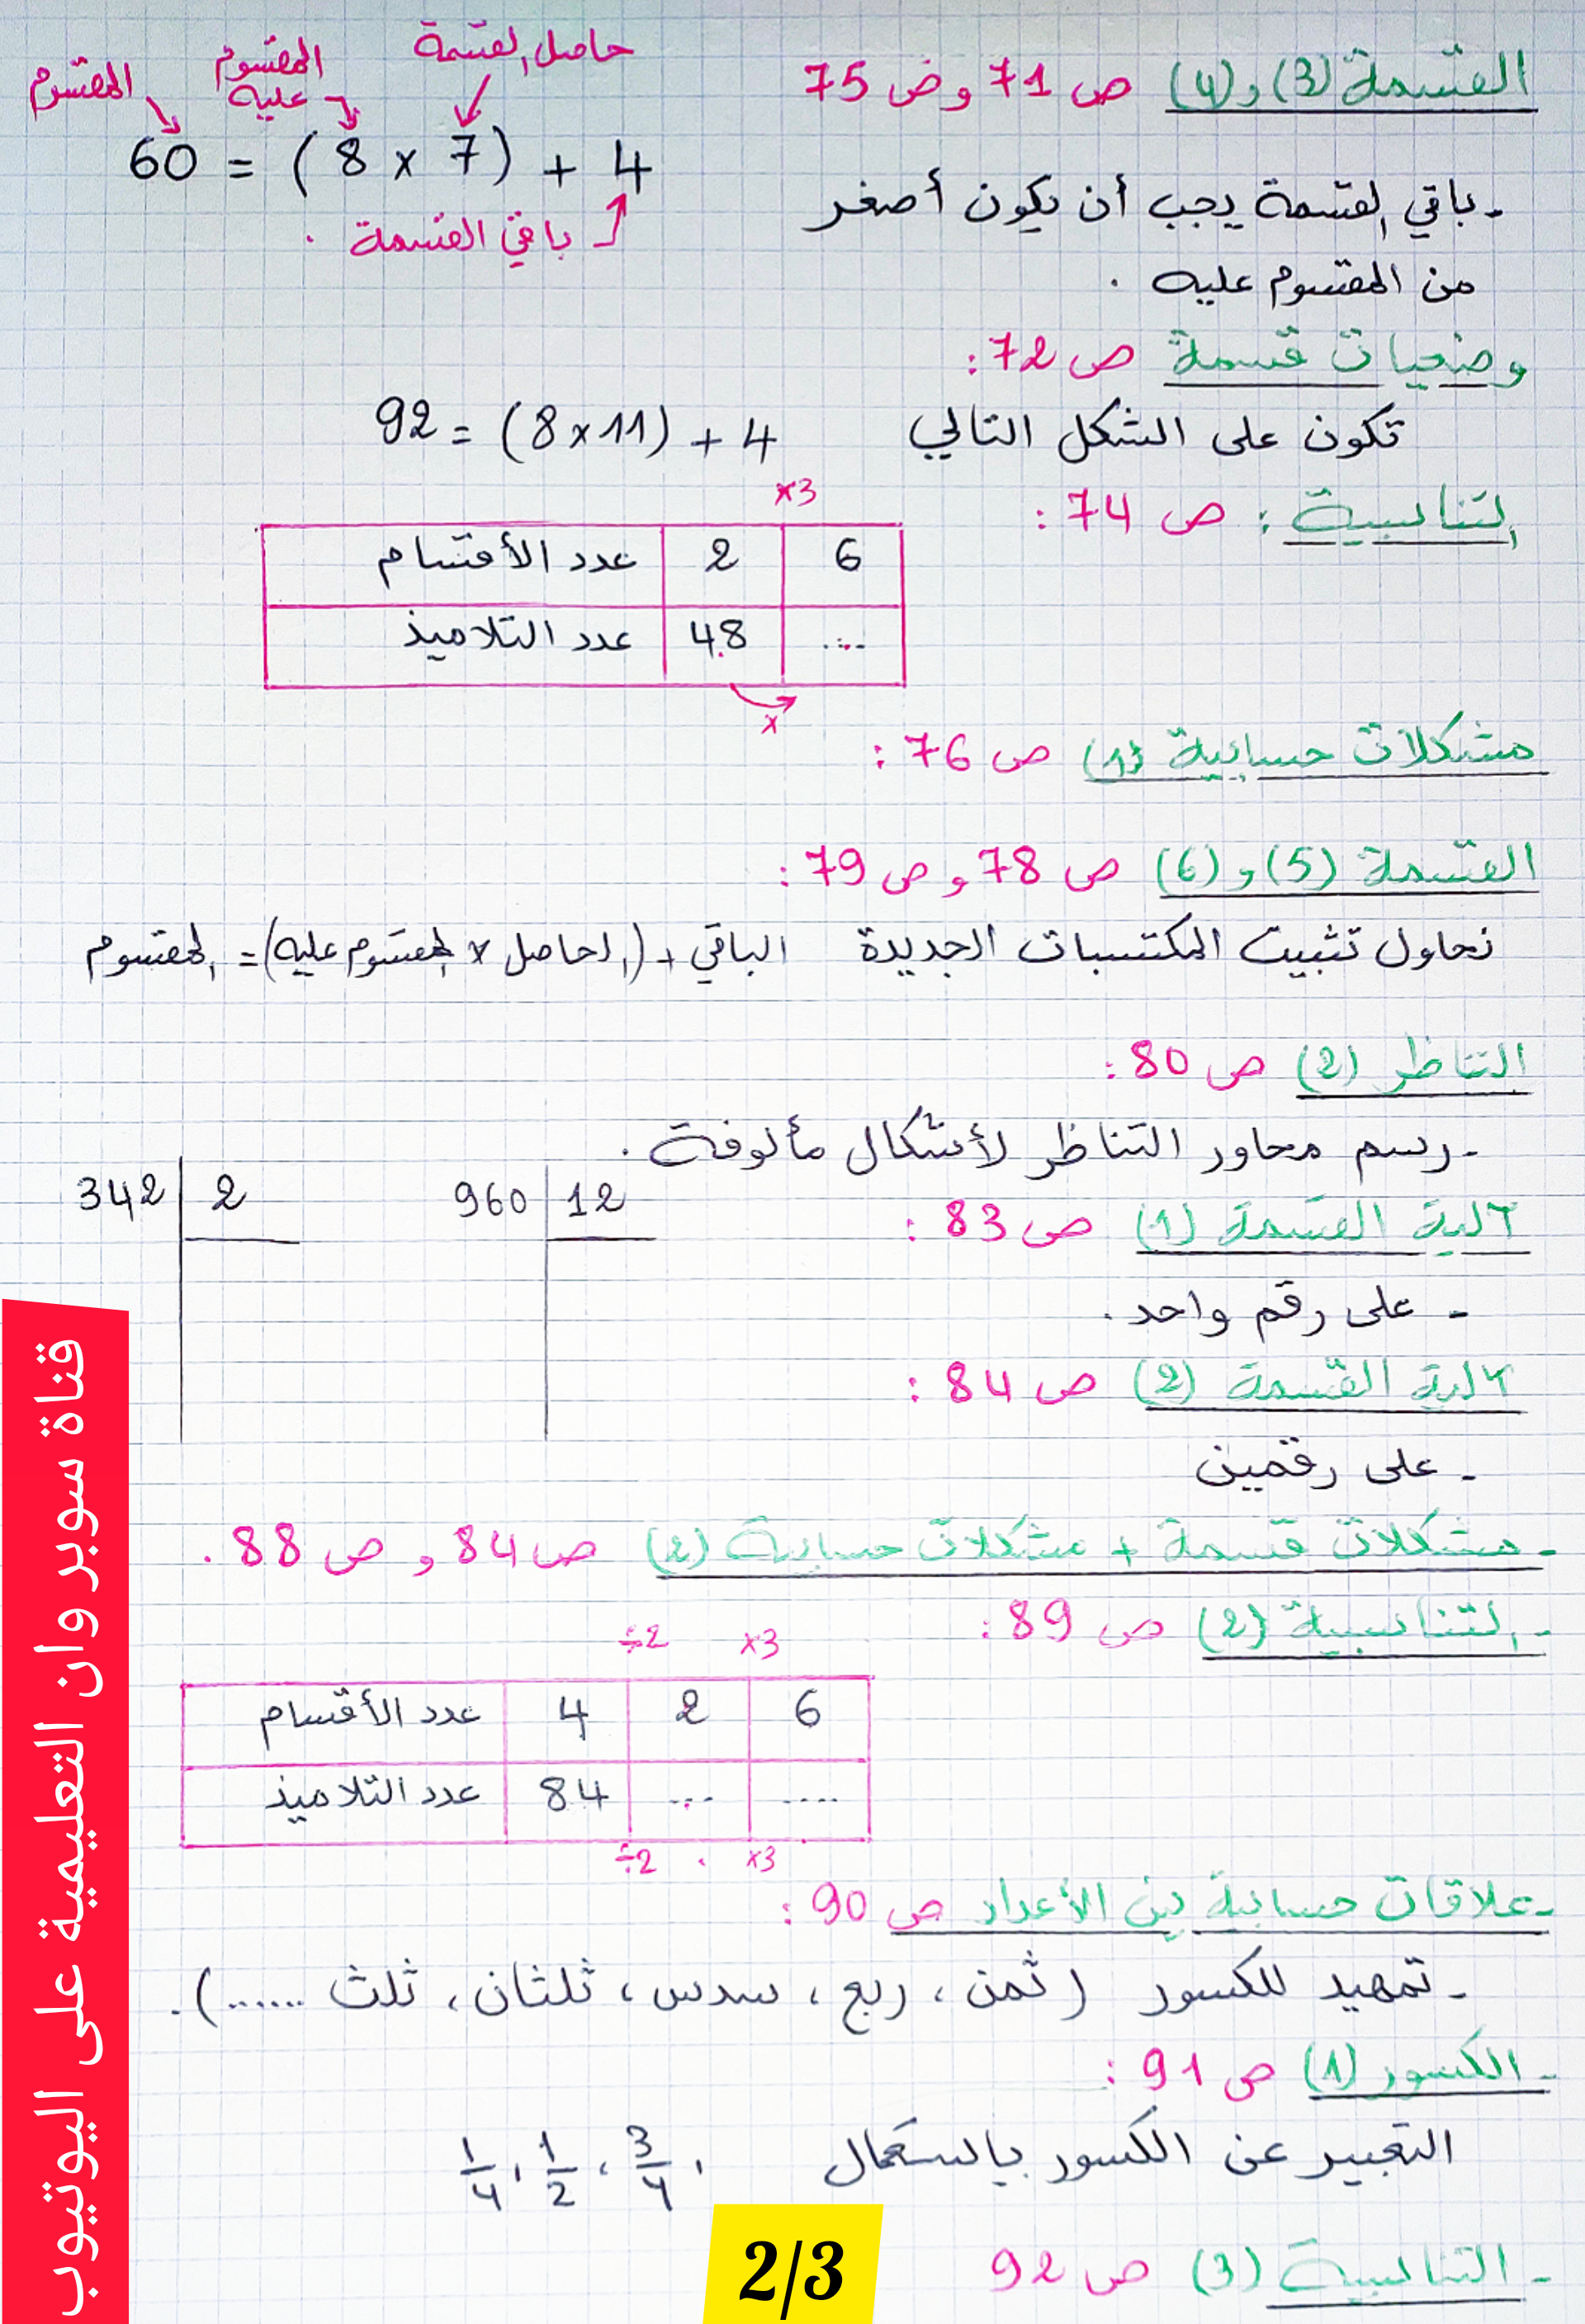 القسمة (3) و (4) ص 71 و ص 75
حاصل القسمة
المقسوم عليه
المقسوم
60 = (8 × 7) + 4
باقي القسمة .
- باقي القسمة يجب أن يكون أصغر
من المقسوم عليه .
وضعيات قسمة ص 72 :
تكون على الشكل التالي 92 = (8 × 11) + 4
التناسبية : ص 74 :
×3
عدد الأقسام 2 6
عدد التلاميذ 48 ....
×
مشكلات حسابية (1) ص 76 :
القسمة (5) و (6) ص 78 و ص 79 :
نحاول تثبيت المكتسبات الجديدة الباقي + (الحاصل × المقسوم عليه) = المقسوم
التناظر (2) ص 80 :
- رسم محاور التناظر لأشكال مألوفة .
آلية القسمة (1) ص 83 :
342 2
960 12
- على رقم واحد .
آلية القسمة (2) ص 84 :
- على رقمين
- مشكلات قسمة + مشكلات حسابية (2) ص 84 و ص 88 .
- التناسبية (2) ص 89 :
÷2 ×3
عدد الأقسام 4 2 6
عدد التلاميذ 84 ... ....
÷2 ×3
- علاقات حسابية بين الأعداد ص 90 :
- تمهيد للكسور (ثمن ، ربع ، سدس ، ثلثان ، ثلث ......) .
- الكسور (1) ص 91 :
التعبير عن الكسور باستعمال 3/4 ، 1/2 ، 1/4
- التناسبية (3) ص 92
2/3
قناة سوبر وان التعليمية على اليوتيوب